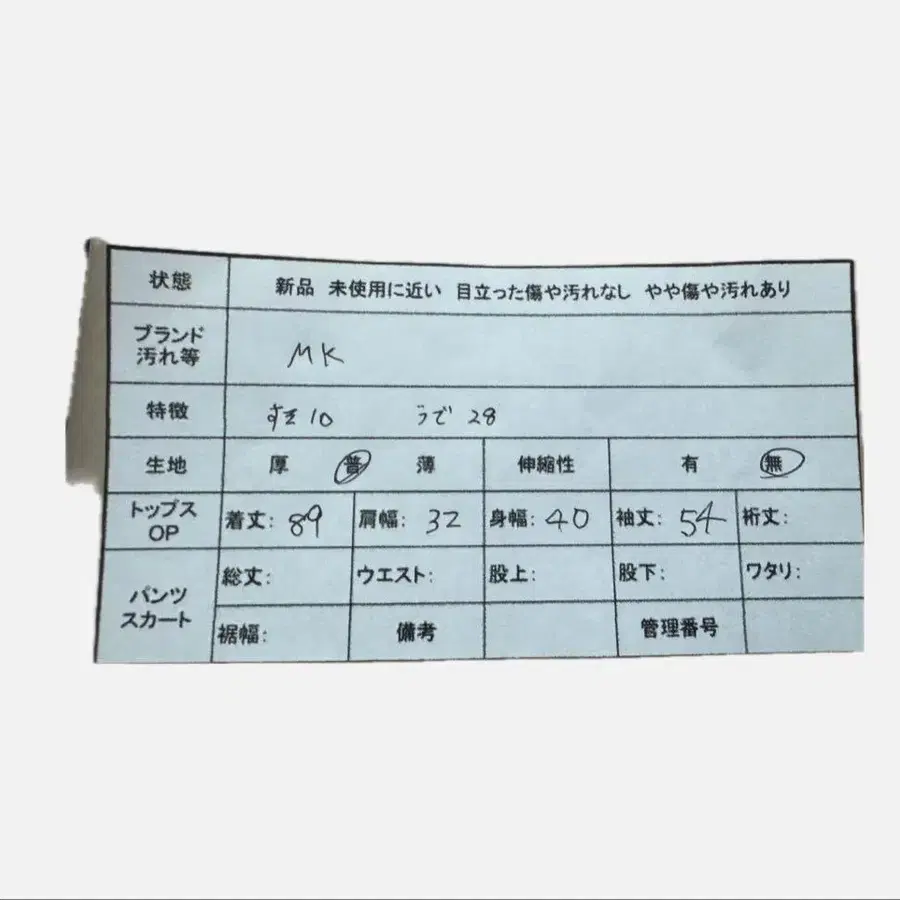 状態 新品 未使用に近い 目立った傷や汚れなし やや傷や汚れあり
ブランド
汚れ等 MK
特徴 10 うで 28
生地 厚 普 薄 伸縮性 有 無
トップス
OP 着丈: 89 肩幅: 32 身幅: 40 袖丈: 54 裄丈:
パンツ
スカート 総丈: ウエスト: 股上: 股下: ワタリ:
裾幅: 備考 管理番号